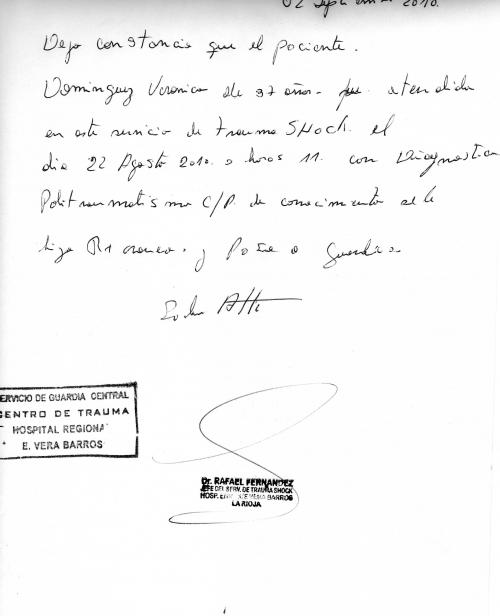 02 2010.
Dejo constancia que el paciente.
Dominguez Veronica de 37 años - fue. atendida
en este servicio de trauma SHock. el
dia 22 Agosto 2010. a horas 11. con Diagnostico
Politraumatismo C/P. de conocimiento se le
hizo RX craneo. y Pasa a Guardia
SERVICIO DE GUARDIA CENTRAL
CENTRO DE TRAUMA
HOSPITAL REGIONAL
E. VERA BARROS
Dr. RAFAEL FERNANDEZ
JEFE DEL SERV. DE TRAUMA SHOCK
HOSP. BARROS
LA RIOJA